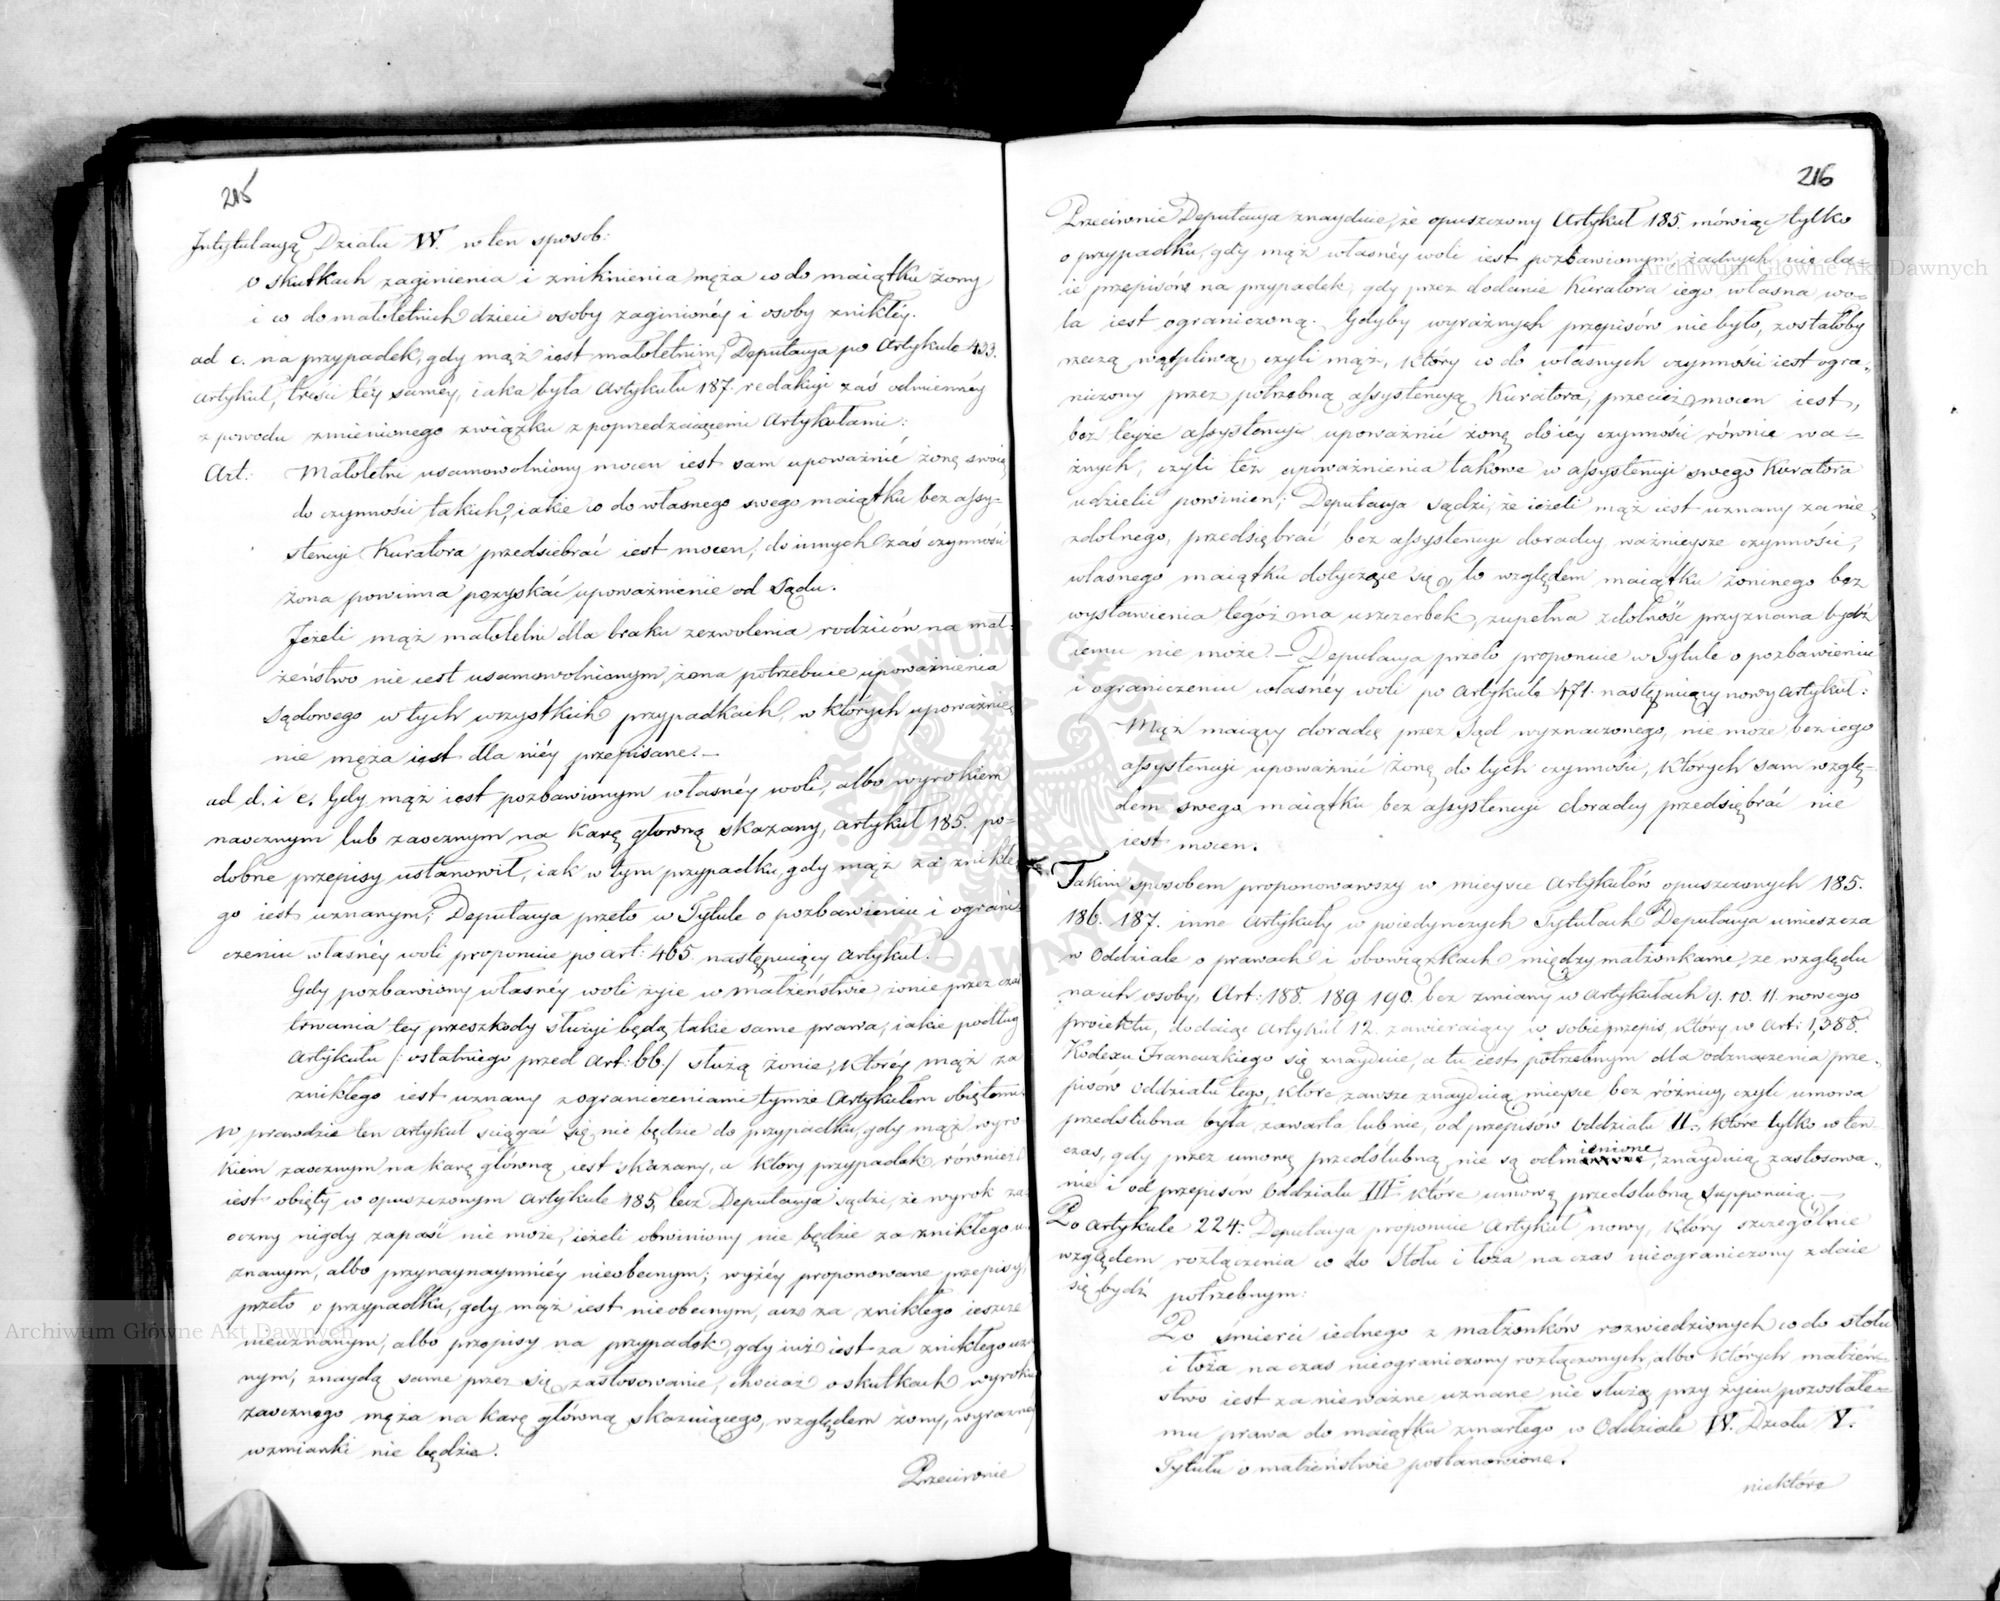 215
Intytulacyą Działu IV. w ten sposob:
o skutkach zaginienia i zniknienia męża co do maiątku żony
i co do małoletnich dzieci osoby zaginionéy i osoby znikłéy.
ad c. na przypadek, gdy mąż iest małoletnim, Deputacya po Artykule 433.
artykuł, treści téy saméy, iaka była Artykułu 187. redakcyi zaś odmiennéy
z powodu zmienionego związku z poprzedzaiącemi Artykułami:
Art: Małoletni usamowolniony mocen iest sam upoważnić żonę swoię
do czynności takich, iakie co do własnego swego maiątku bez assy-
stencyi Kuratora przedsiebrać iest mocen, do innych zaś czynności
żona powinna pozyskać upoważnienie od Sądu.
Jeżeli mąż małoletni dla braku zezwolenia rodziców na mał-
żeństwo nie iest usamowolnionym, żona potrzebuie upoważnienia
Sądowego w tych wszystkich przypadkach, w których upoważnie
nie męża iest dla niéy przepisane.—
ad d. i e. Gdy mąż iest pozbawionym własnéy woli, albo wyrokiem
naocznym lub zaocznym na karę główną skazany, artykuł 185. po-
dobne przepisy ustanowił, iak w tym przypadku, gdy mąż za znikłe
go iest uznanym; Deputacya przeto w Tytule o pozbawieniu i ograni-
czeniu własnéy woli proponuie po art: 465. następuiący Artykuł.—
Gdy pozbawiony własnéy woli żyie w małżeństwie żonie przez czas
trwania tey przeszkody służyć będą takie same prawa, iakie podług
Artykułu /: ostatniego przed Art: 66:/ służą żonie, któréy mąż za
znikłego iest uznany z ograniczeniami tymże Artykułem obiętemi.
W prawdzie ten artykuł sciągać się nie będzie do przypadku, gdy mąż wyro
kiem zaocznym na karę główną iest skazany, a który przypadek również
iest obięty w opuszczonym Artykule 185, lecz Deputacya sądzi, że wyrok za-
oczny nigdy zapaść nie może, ieżeli obwiniony nie będzie za znikłego u-
znanym, albo przynaymniéy nieobecnym; wyżéy proponowane przepisy,
przeto o przypadku, gdy mąż iest nieobecnym, acz za znikłego ieszcze
nieuznanym, albo przepisy na przypadek, gdy iuż iest za znikłego uzn
nym, znaydą same przez się zastosowanie, chociaż o skutkach wyroku
zaocznego męża na karę główną skazuiącego, względem żony, wyraźnéy
wzmianki nie będzie.
Przeciwnie
216
Przeciwnie Deputacya znayduie, że opuszczony Artykuł 185. mówiąc tylko
o przypadku, gdy mąż własnéy woli iest pozbawionym, żadnych nie da-
ie przepisów na przypadek, gdy przez dodanie Kuratora iego własna wo-
la iest ograniczoną. Gdyby wyraźnych przepisów nie było, zostałoby
rzeczą wątpliwą, czyli mąż, który co do własnych czynności iest ogra-
niczony przez potrzebną assystencyą Kuratora, przecież mocen iest,
bez teyże assystencyi upoważnić żonę do iéy czynności równie wa-
żnych, czyli też upoważnienia takowe w assystencyi swego Kuratora
udzielić powinien; Deputacya sądzi, że ieżeli mąż iest uznany za nie
zdolnego, przedsiębrać bez assystencyi doradcy ważnieysze czynności,
własnego maiątku dotyczące się, to względem maiątku żoninego bez
wystawienia tegóż na uszczerbek, zupełna zdolność przyznana bydź
iemu nie może.— Deputacya przeto proponuie w Tytule o pozbawieniu
i ograniczeniu własnéy woli po Artykule 471. następuiący nowy artykuł:
Mąż maiący doradcę przez Sąd wyznaczonego, nie może bez iego
assystencyi upoważnić żonę do tych czynności, których sam wzglę-
dem swego maiątku bez assystencyi doradcy przedsiębrać nie
iest mocen.
Takim sposobem proponowawszy w mieysce Artykułów opuszczonych 185.
186. 187. inne Artykuły w poiedynczych Tytułach Deputacya umieszcza
w Oddziale o prawach i obowiązkach między małżonkami, ze względu
na ich osoby, Art: 188. 189 190. bez zmiany w artykułach 9. 10. 11. nowego
proiektu, dodaiąc Artykuł 12. zawieraiący w sobie przepis, który w Art: 1,388.
Kodexu Francuzkiego się znayduie, a tu iest potrzebnym dla odznaczenia prze-
pisów oddziału tego, które zawsze znayduią mieysce bez różnicy, czyli umowa
przedslubna była zawarta lub nie, od przepisów oddziału II., które tylko w ten
czas, gdy przez umowę przedślubną nie są odmienione, znayduią zastosowa-
nie i od przepisów oddziału III. które umowę przedslubną supponuią.—
Po Artykule 224. Deputacya proponuie Artykuł nowy, który szczególnie
względem rozłączenia co do Stołu i łoża na czas nieograniczony zdaie
się bydź potrzebnym:
Po śmierci iednego z małżonków rozwiedzionych co do stołu
i łoża na czas nieograniczony rozłączonych, albo których małżeń-
stwo iest za nieważne uznane nie służą przy życiu pozostałe-
mu prawa do maiątku zmarłego w Oddziale IV. Działu V.
Tytułu o małżeństwie postanowione.
niektóre